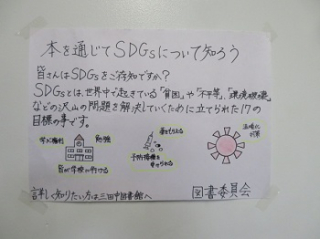 本を通じてSDGsについて知ろう
皆さんはSDGsをご存知ですか?
SDGsとは、世界中で起きている「貧困」や「不平等」、「環境破壊」
などの沢山の問題を解決していくために立てられた17の
目標の事です。
勉強
皆が学校へ行ける
予防接種を
詳しく知りたい方は三田中図書館へ
図書委員会